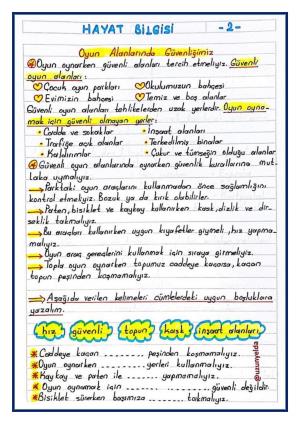 HAYAT BİLGİSİ -2-
Oyun Alanlarında Güvenliğimiz
Oyun oynarken güvenli alanları tercih etmeliyiz. Güvenli
oyun alanları:
Çocuk oyun parkları Okulumuzun bahçesi
Evimizin bahçesi Temiz ve boş alanlar
Güvenli oyun alanları tehlikelerden uzak yerlerdir. Oyun oyna-
mak için güvenli olmayan yerler:
• Cadde ve sokaklar • İnşaat alanları
• Trafiğe açık alanlar • Terkedilmiş binalar
• Kaldırımlar • Çukur ve tümseğin olduğu alanlar
Güvenli oyun alanlarında oynarken güvenlik kurallarına mut-
laka uymalıyız.
Parktaki oyun araçlarını kullanmadan önce sağlamlığını
kontrol etmeliyiz. Bozuk ya da kırık olabilirler.
Paten, bisiklet ve kaykay kullanırken kask, dizlik ve dir-
seklik takmalıyız.
Bu araçları kullanırken uygun kıyafetler giymeli, hız yapma-
malıyız.
Oyun araç gereçlerini kullanmak için sıraya girmeliyiz.
Topla oyun oynarken topumuz caddeye kaçarsa, kaçan
topun peşinden koşmamalıyız.
Aşağıda verilen kelimeleri cümlelerdeki uygun boşluklara
yazalım.
hız güvenli topun kask inşaat alanları
Caddeye kaçan .......... peşinden koşmamalıyız.
Oyun oynarken .......... yerleri kullanmalıyız.
Kaykay ve paten ile .......... yapmamalıyız.
Oyun oynamak için .......... güvenli değildir.
Bisiklet sürerken başımıza .......... takmalıyız.